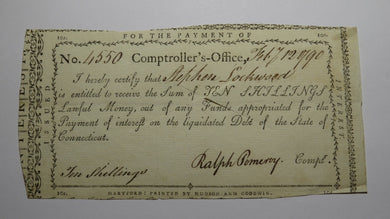 10s. FOR THE PAYMENT OF 10s.
No. 4550 Comptroller's-Office, Feby 12 1790
I hereby certify that Stephen Lockwood
is entitled to receive the Sum of TEN SHILLINGS
Lawful Money, out of any Funds appropriated for the
Payment of interest on the liquidated Debt of the State of
Connecticut.
Ralph Pomeroy. Compt.
Ten Shillings
10s. HARTFORD: PRINTED BY HUDSON AND GOODWIN. 10s.
INTEREST